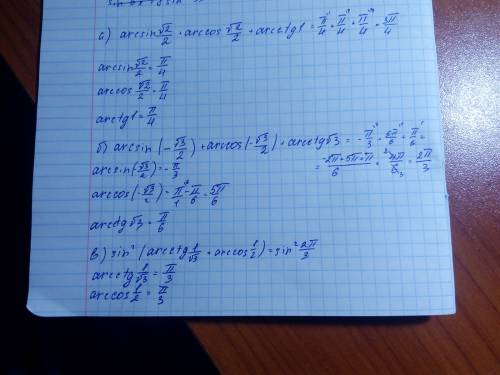 а) arcsin √2/2 + arccos √2/2 + arcctg1 = π/4 + π/4 + π/4 = 3π/4
arcsin √2/2 = π/4
arccos √2/2 = π/4
arcctg1 = π/4
б) arcsin (-√3/2) + arccos (-√3/2) + arcctg√3 = -π/3 + 5π/6 + π/6 =
arcsin (-√3/2) = -π/3 = (-2π+5π+π)/6 = 4π/6 = 2π/3
arccos (-√3/2) = π/1 - π/6 = 5π/6
arcctg √3 = π/6
в) sin² (arcctg 1/√3 + arccos 1/2) = sin² 2π/3
arcctg 1/√3 = π/3
arccos 1/2 = π/3